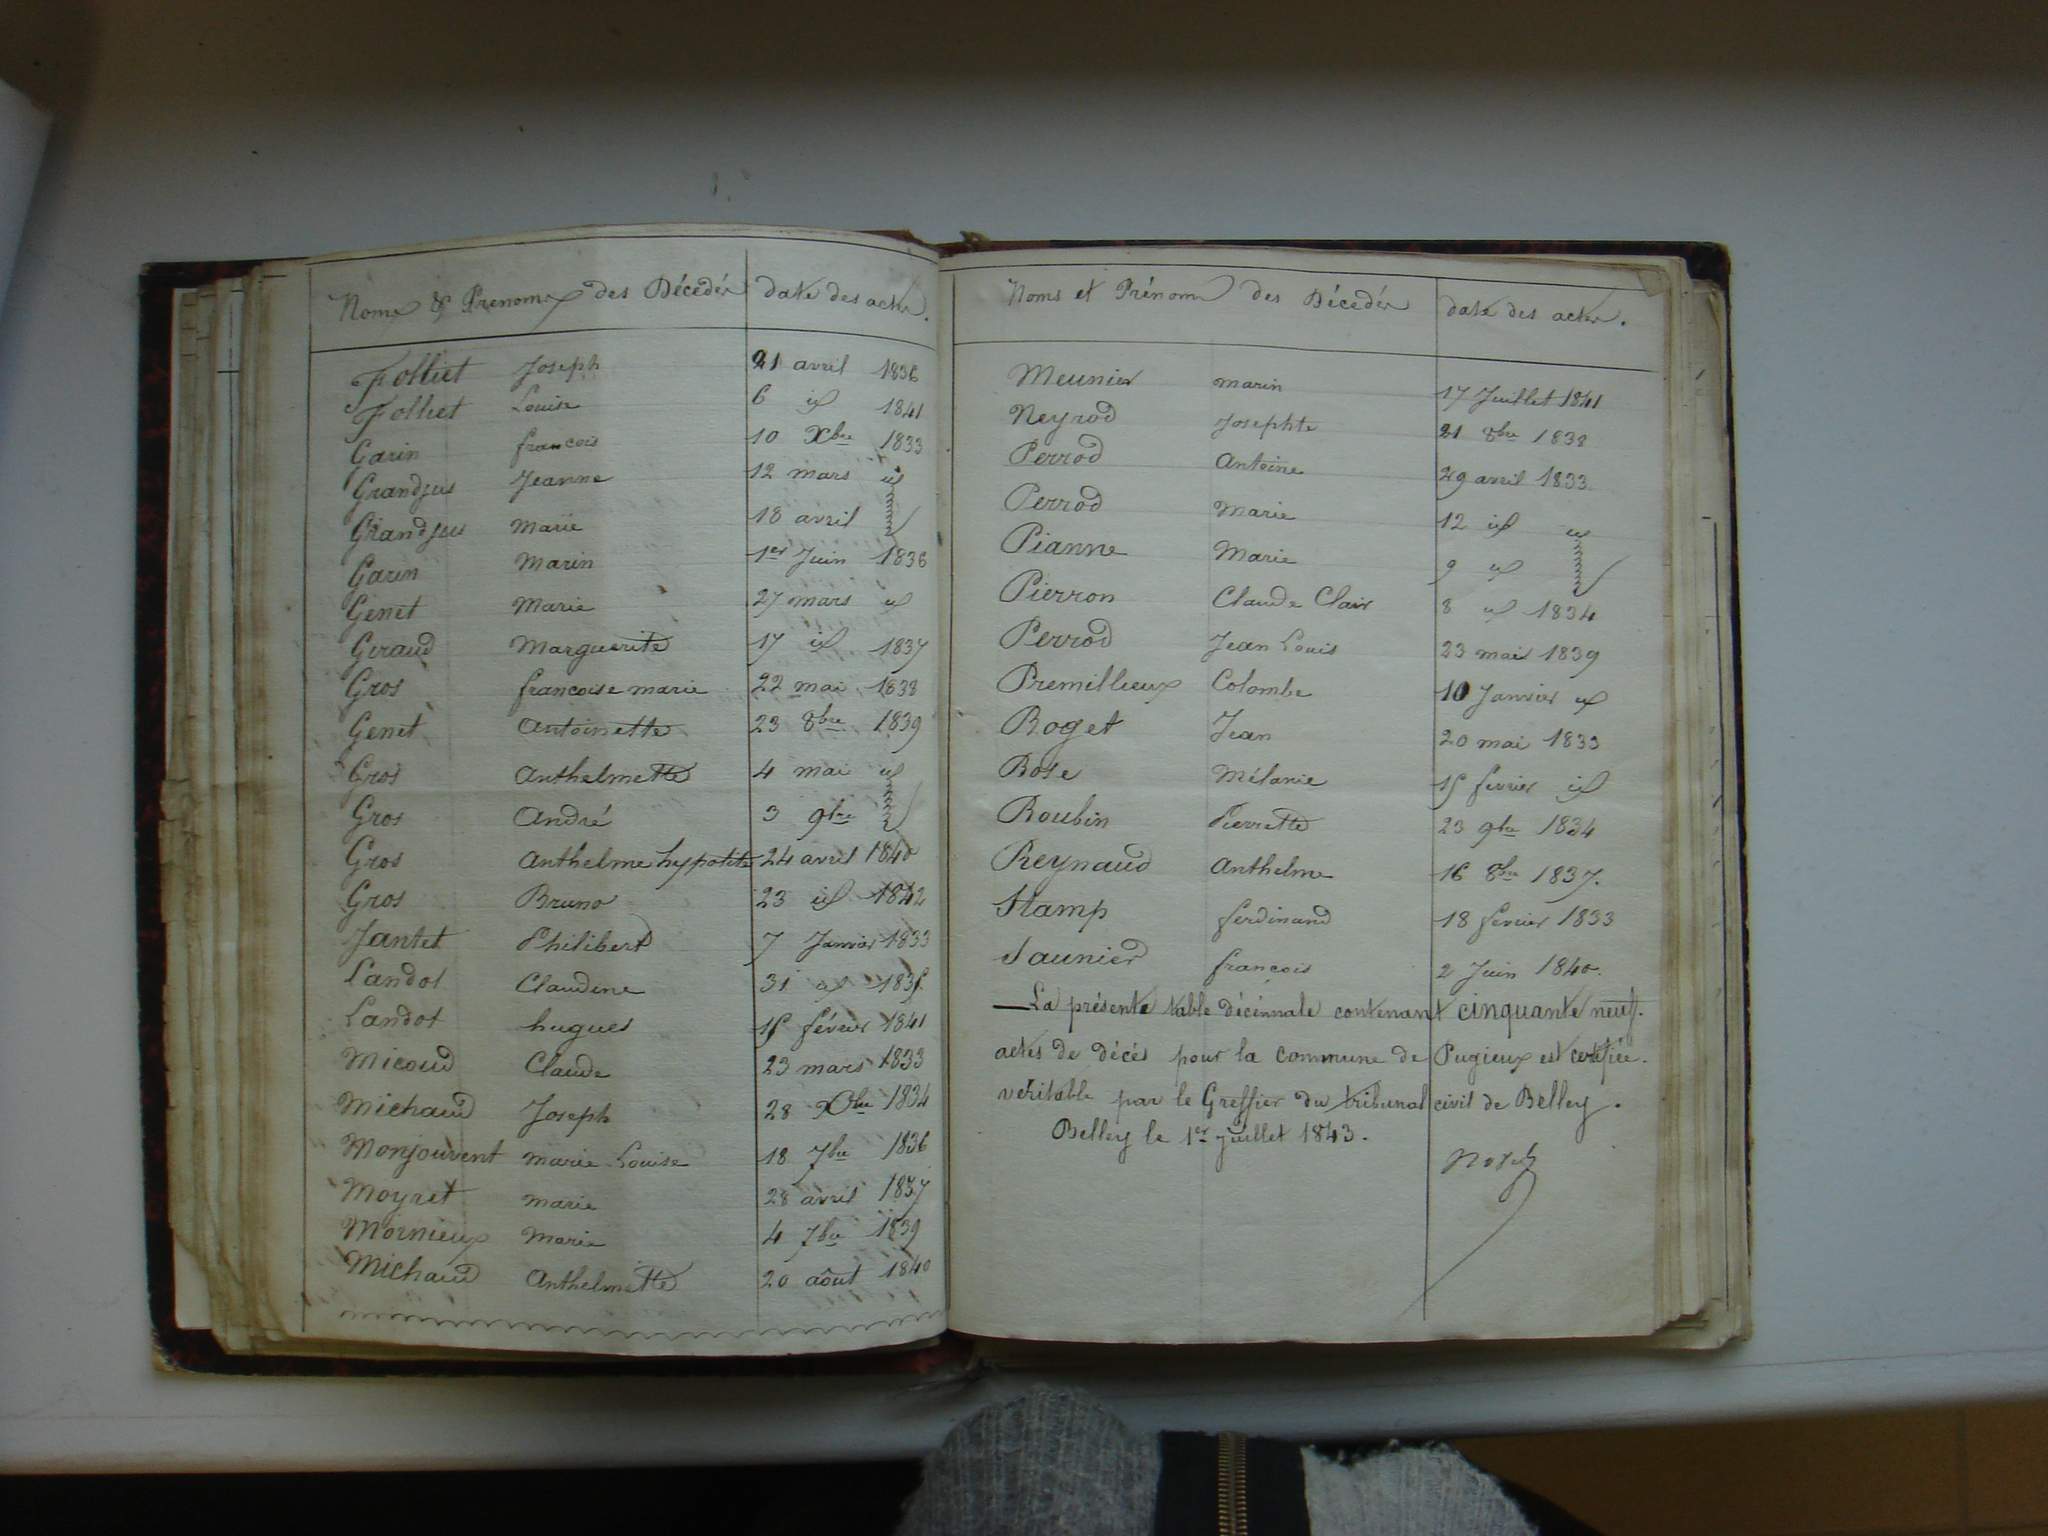 Noms & Prénoms des Décédés date des actes.
Folliet Joseph 21 avril 1836
Folliet Louise 6 id 1841
Garin francois 10 Xbre 1833
Grandjus Jeanne 12 mars id
Grandjus Marie 18 avril
Garin Marin 1er Juin 1836
Genet Marie 27 mars id
Giraud Marguerite 17 id 1837
Gros francoise marie 22 mai 1838
Genet Antoinette 23 8bre 1839
Gros Anthelmette 4 mai id
Gros André 3 9bre
Gros Anthelme hypolite 24 avril 1840
Gros Bruno 23 id 1842
Jantet Philibert 7 Janvier 1833
Landot Claudine 31 id 1835
Landot hugues 15 février 1841
Micoud Claude 23 mars 1833
Michaud Joseph 28 Xbre 1834
Monjouvent marie Louise 18 7bre 1836
Moyret marie 28 avril 1837
Mornieux Marie 4 7bre 1839
Michaud Anthelmette 20 août 1840
Noms et Prénoms des Décédés date des actes.
Meunier marin 17 Juillet 1841
Neyrod Josephte 21 8bre 1838
Perrod Antoine 29 avril 1833
Perrod Marie 12 id id
Pianne Marie 9 id
Pierron Claude Clair 8 id 1834
Perrod Jean Louis 23 mai 1839
Premillieux Colombe 10 Janvier id
Roget Jean 20 mai 1833
Rose Mélanie 15 fevrier id
Roubin Pierrette 23 9bre 1834
Reynaud Anthelme 16 8bre 1837.
Stamp ferdinand 18 fevrier 1833
Saunier francois 2 Juin 1840.
La présente table décennale contenant cinquante neuf.
actes de décès pour la commune de Pugieux est certifiée.
veritable par le Greffier du tribunal civil de Belley.
Belley le 1er juillet 1843.